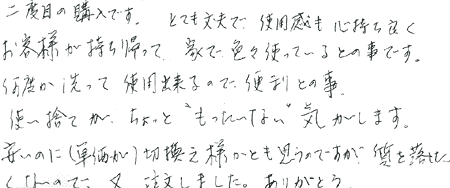 二度目の購入です。 とても丈夫で、使用感も心持ち良く
お客様が持ち帰って、家で色々使っているとの事です。
何度か洗って使用出来るので、便利との事、
使い捨てが、ちょっと“もったいない”気がします。
安いのに(単価が)切換え様かとも思うのですが、質を落せた
くないので、又、注文しました。ありがとう